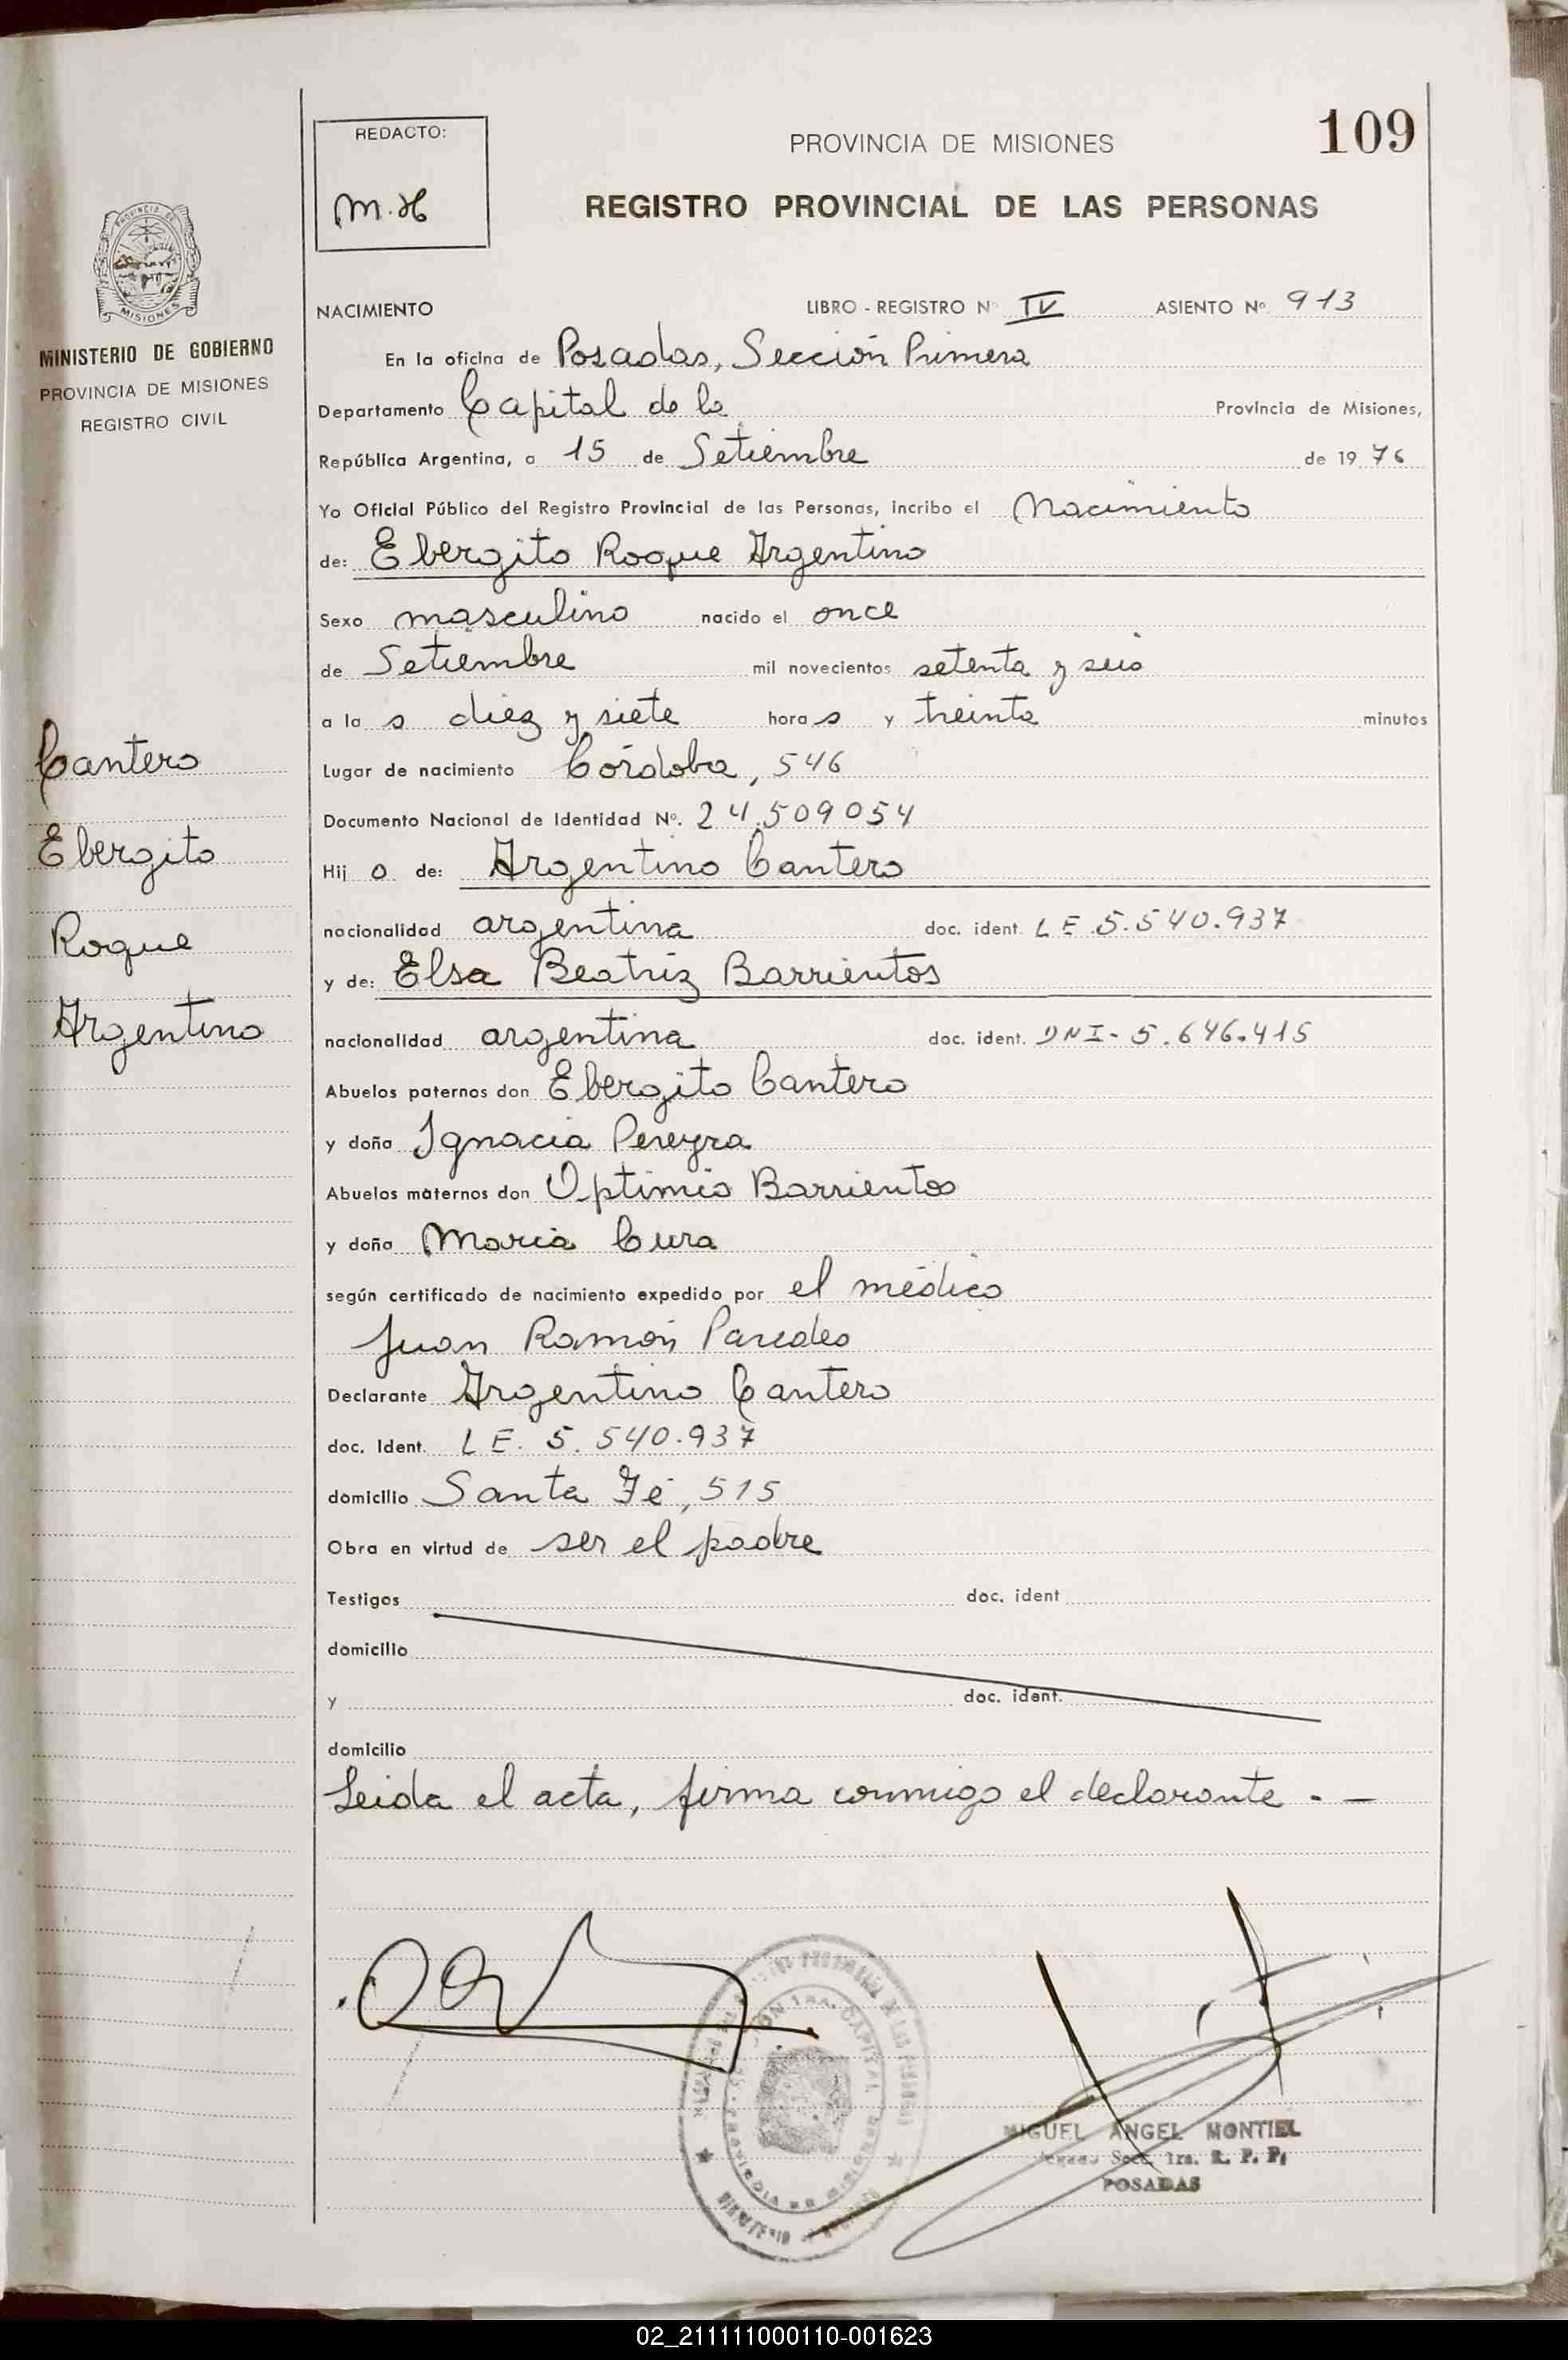 109
REDACTO:
M.H
PROVINCIA DE MISIONES
REGISTRO PROVINCIAL DE LAS PERSONAS
PROVINCIA DE
MISIONES
MINISTERIO DE GOBIERNO
PROVINCIA DE MISIONES
REGISTRO CIVIL
NACIMIENTO LIBRO - REGISTRO Nº IV ASIENTO Nº 913
En la oficina de Posadas, Sección Primera
Departamento Capital de la Provincia de Misiones,
República Argentina, a 15 de Setiembre de 1976
Yo Oficial Público del Registro Provincial de las Personas, incribo el Nacimiento
de: Ebergito Roque Argentino
Sexo masculino nacido el once
de Setiembre mil novecientos setenta y seis
a la s diez y siete hora s y treinta minutos
Lugar de nacimiento Córdoba, 546
Documento Nacional de Identidad Nº. 24.509054
Hij o de: Argentino Cantero
nacionalidad argentina doc. ident. LE 5.540.937
y de: Elsa Beatriz Barrientos
nacionalidad argentina doc. ident. DNI- 5.646.415
Abuelos paternos don Ebergito Cantero
y doña Ignacia Pereyra
Abuelos maternos don Optimio Barrientos
y doña Maria Cura
según certificado de nacimiento expedido por el médico
Juan Ramón Paredes
Declarante Argentino Cantero
doc. Ident. LE. 5.540.937
domicilio Santa Fé, 515
Obra en virtud de ser el padre
Testigos doc. ident
domicilio
y doc. ident.
domicilio
Leida el acta, firma conmigo el declarante . —
Cantero
Ebergito
Roque
Argentino
MIGUEL ANGEL MONTIEL
Secc. 1ra. R. P. P.
POSADAS
02_211111000110-001623